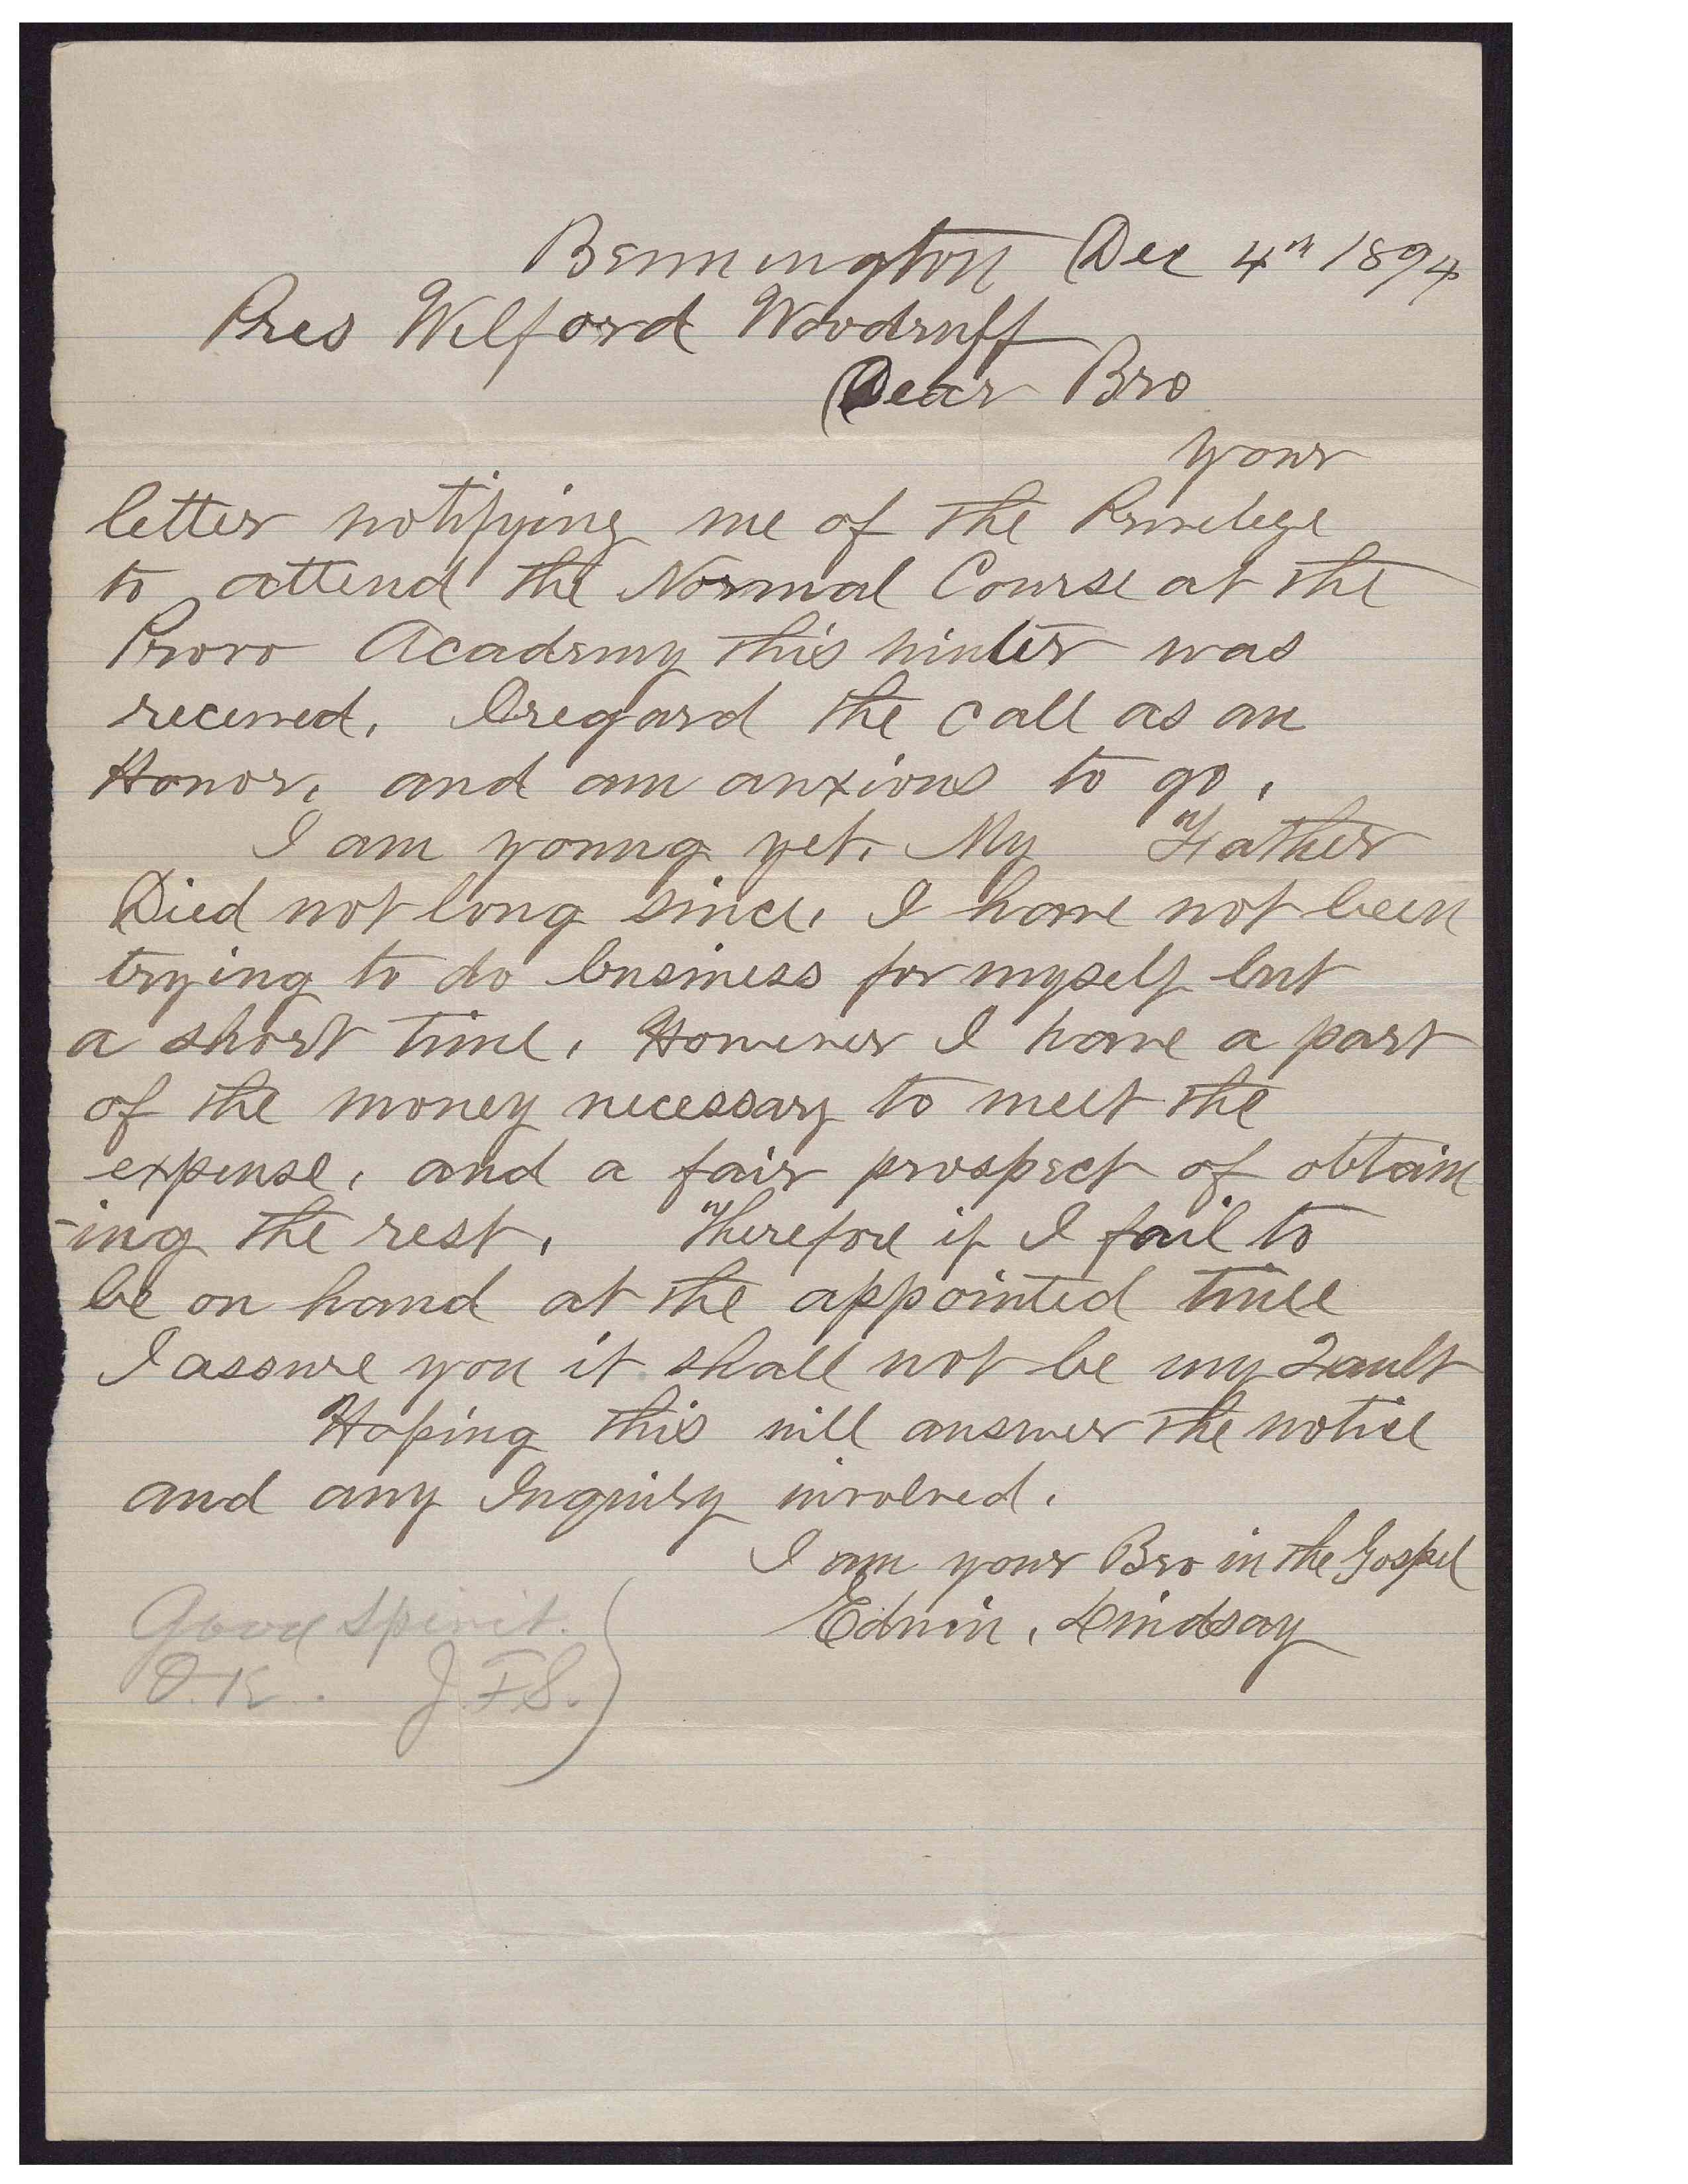 Bennington Dec 4th 1894
Pres Wilford Woodruff
Dear Bro
your
letter notifying me of the Privelege
to attend the Normal Course at the
Provo Academy this winter was
received. I regard the call as an
Honor, and am anxious to go.
I am young yet. My Father
Died not long since. I have not been
trying to do business for myself but
a short time. However I have a part
of the money necessary to meet the
expense, and a fair prospect of obtain
-ing the rest. Therefore if I fail to
be on hand at the appointed time
I assure you it shall not be my Fault
Hoping this will answer the notice
and any Inquiry involved.
I am your Bro in the Gospel
Edwin, Lindsay
Good spirit.
O.K. J.F.S.